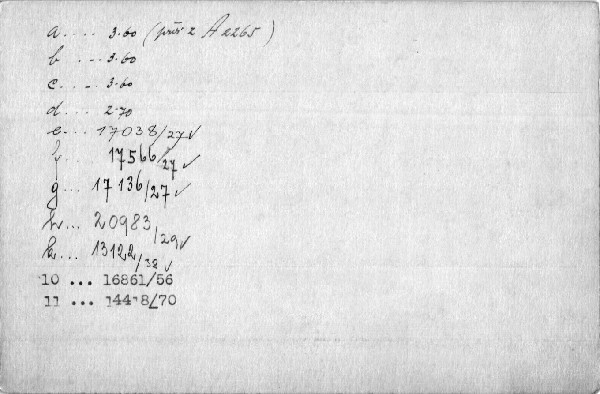 a.... 3.60 (přív z A 2265)
b ... 3.60
c.... 3.60
d... 2.70
e... 17038/27 ✓
f... 17566/27 ✓
g... 17136/27 ✓
h... 20983/29 ✓
k... 13122/38 ✓
10 ... 16861/56
11 ... 14418/70